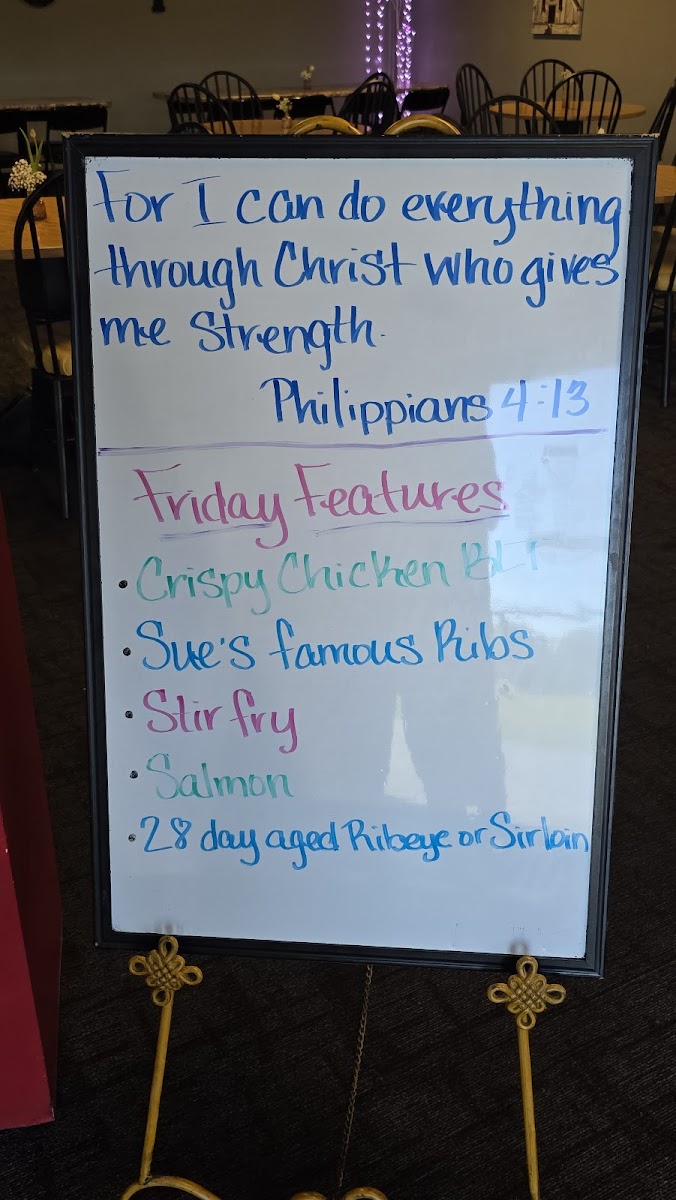 For I can do everything
through Christ who gives
me Strength.
Philippians 4:13
Friday Features
• Crispy Chicken BLT
• Sue's famous Ribs
• Stir fry
• Salmon
• 28 day aged Ribeye or Sirloin